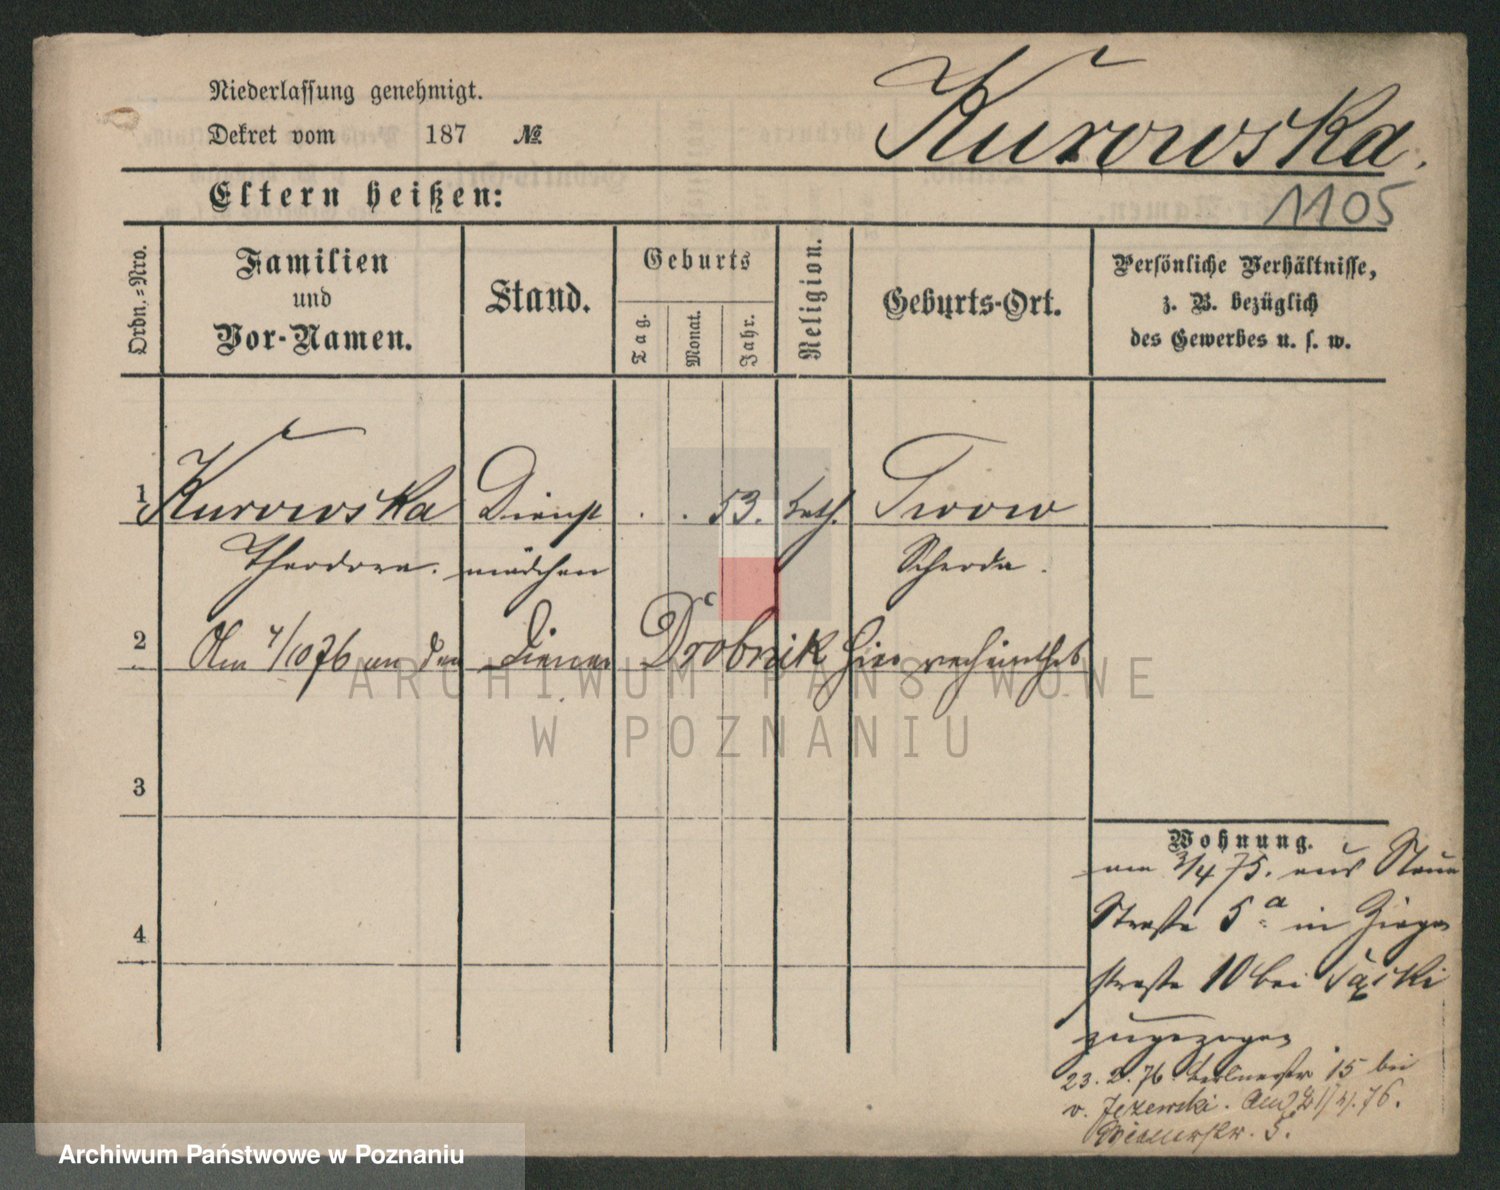 Niederlassung genehmigt.
Dekret vom 187 №
Kurowska.
Eltern heißen:
1105
Ordn.=Nro.
Familien
und
Vor-Namen.
Stand.
Geburts
Tag.
Monat.
Jahr.
Religion.
Geburts-Ort.
Persönliche Verhältnisse,
z. B. bezüglich
des Gewerbes u. s. w.
1 Kurowska Dienst . . 53. kath.
Theodora. mädchen Schroda.
2 Am 4/10 76 an den Diener Drobnik hier verheirathet
3
Wohnung.
am 3/4 75. aus Neue
Straße 5 a in Ziegen
straße 10 bei
zugezogen
23. 2. 76 15 bei
v. Jezewski. 76.
5.
4
ARCHIWUM PAŃSTWOWE
W POZNANIU
Archiwum Państwowe w Poznaniu